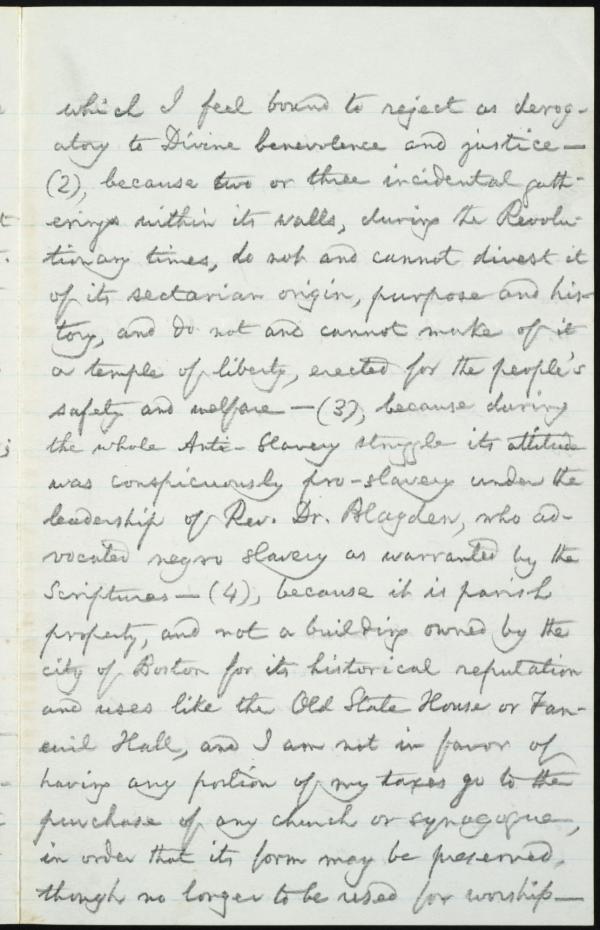 which I feel bound to reject as derog-
atory to Divine benevolence and justice—
(2), because two or three incidental gath-
erings within its walls, during the Revolu-
tionary times, do not and cannot divest it
of its sectarian origin, purpose and his-
tory, and do not and cannot make of it
a temple of liberty, erected for the people's
safety and welfare—(3), because during
the whole Anti-Slavery struggle its attitude
was conspicuously pro-slavery under the
leadership of Rev. Dr. Blagden, who ad-
vocated negro slavery as warranted by the
Scriptures—(4), because it is parish
property, and not a building owned by the
city of Boston for its historical reputation
and uses like the Old State House or Fan-
euil Hall, and I am not in favor of
having any portion of my taxes go to the
purchase of any church or synagogue,
in order that its form may be preserved,
though no longer to be used for worship—